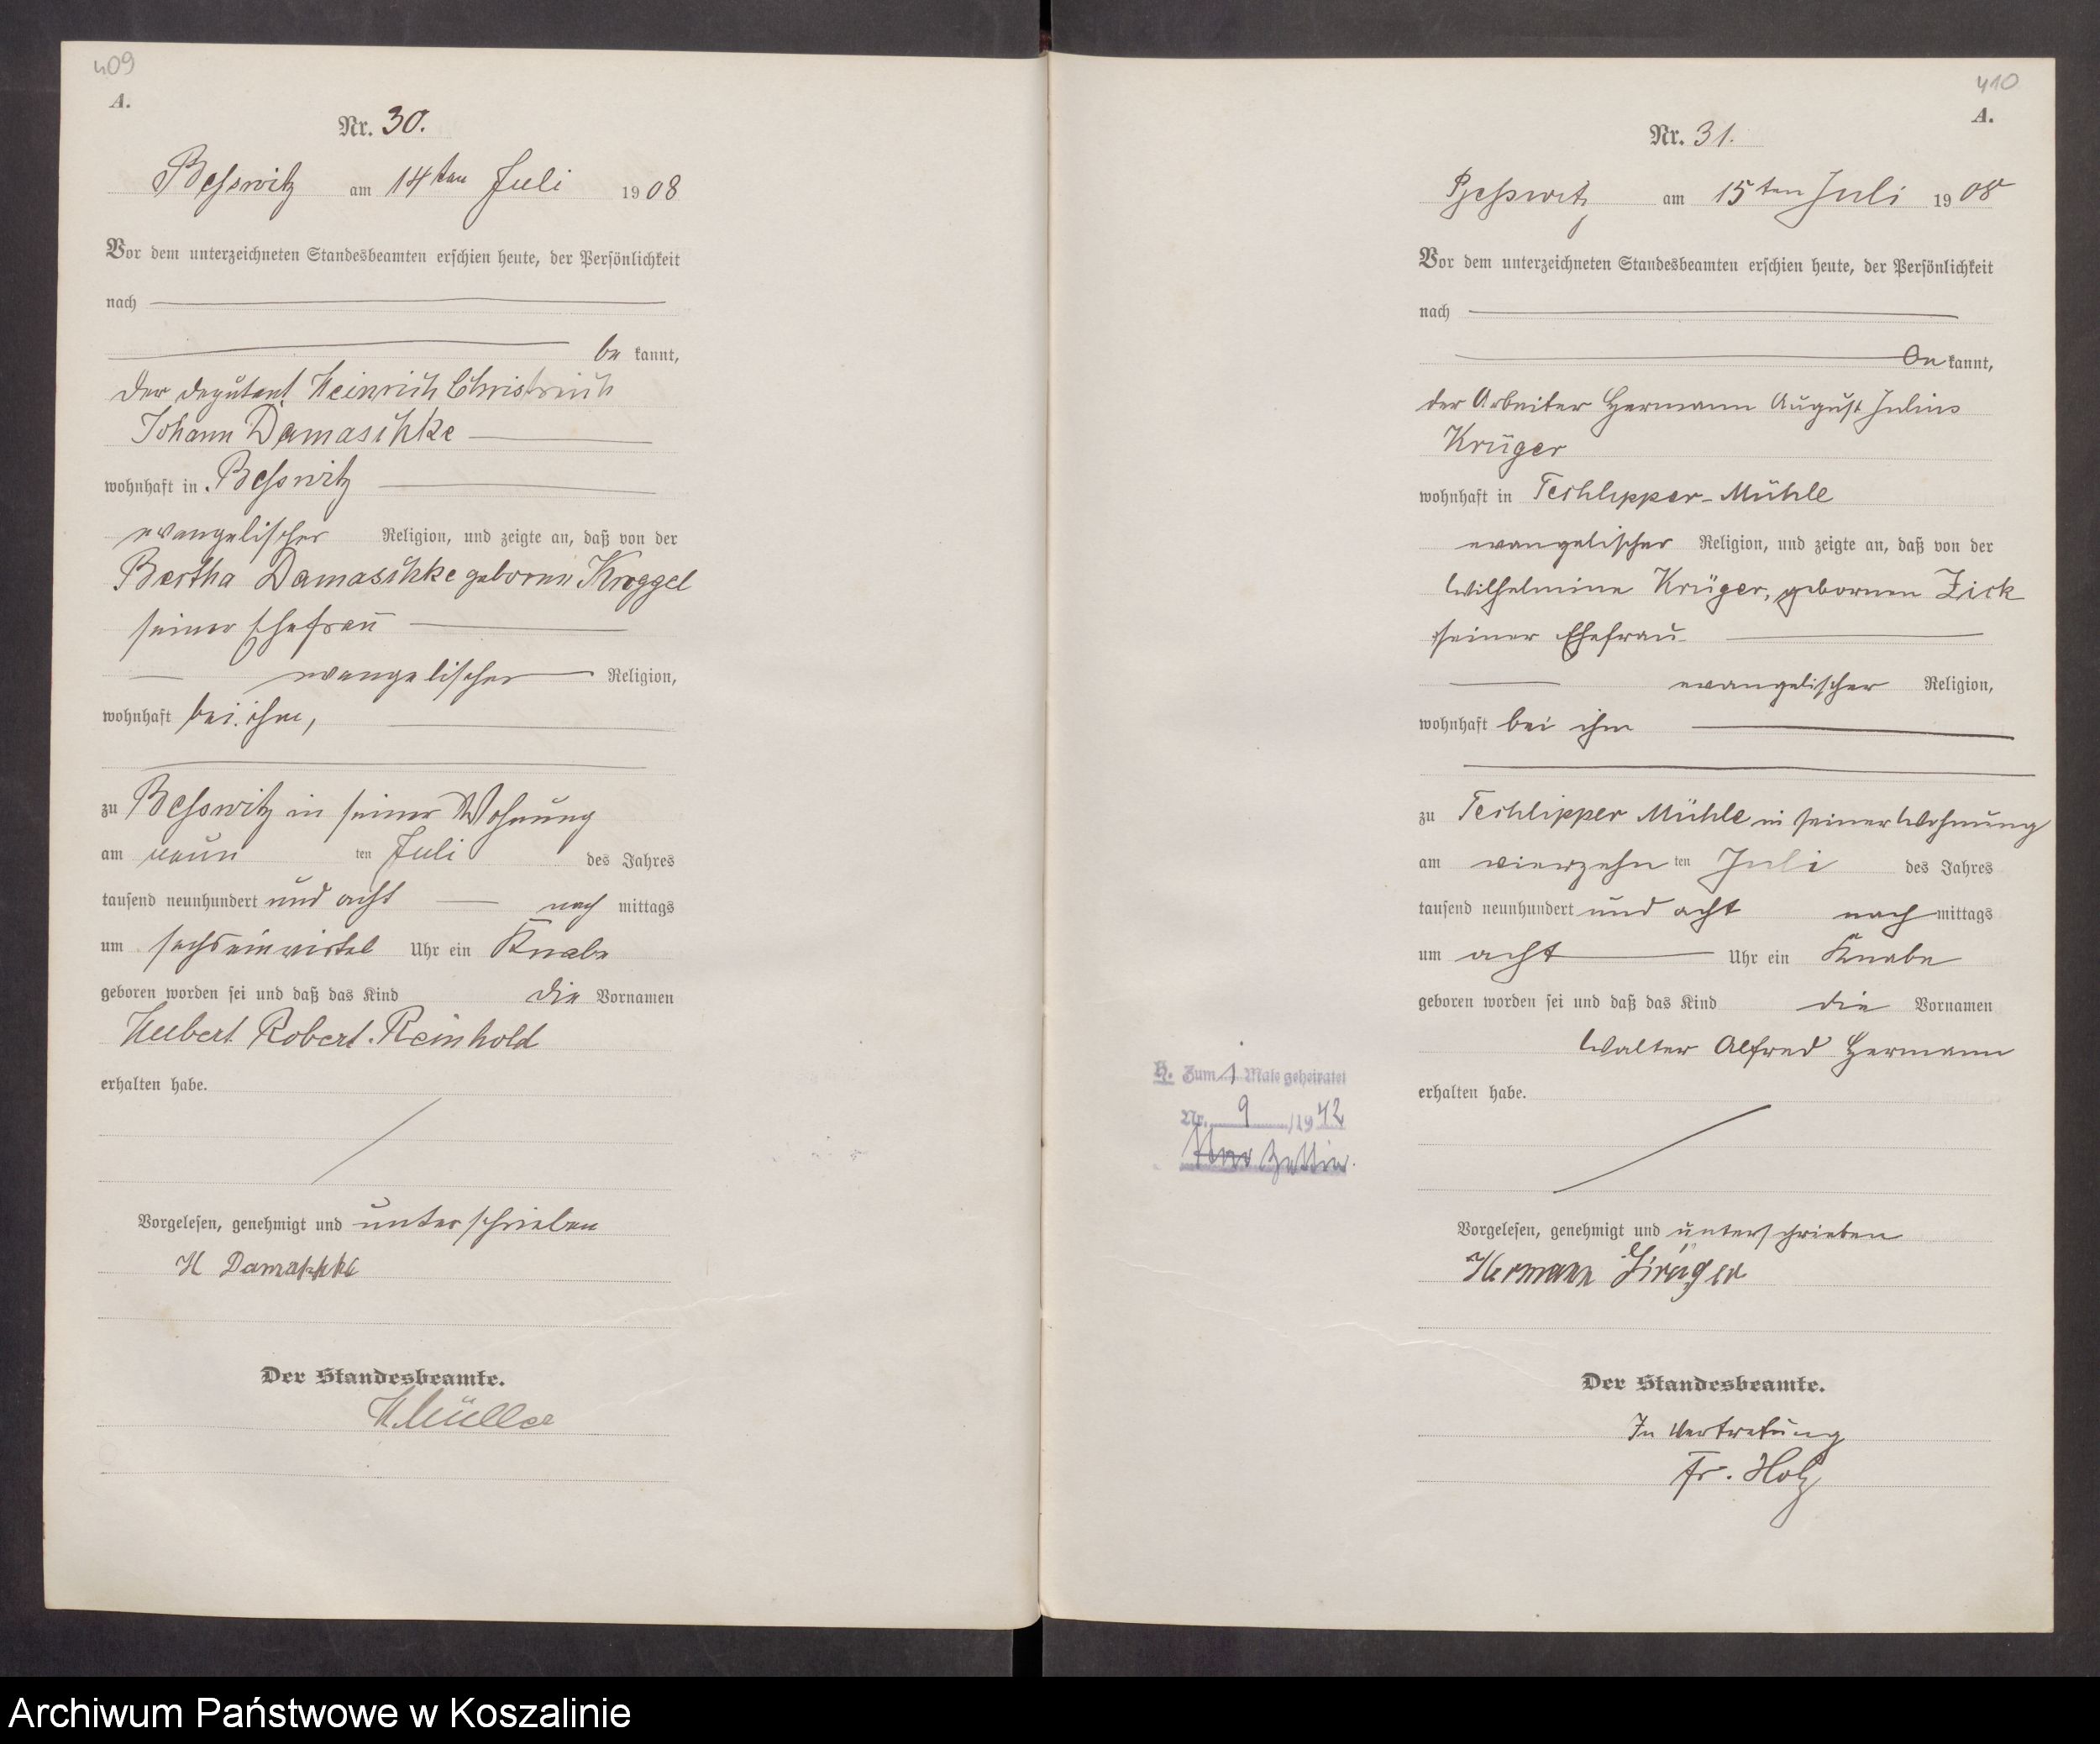 409
A.
Nr. 30.
Beßwitz am 14ten Juli 1908
Vor dem unterzeichneten Standesbeamten erschien heute, der Persönlichkeit
nach
be kannt,
der Deputant Heinrich Christ
Johann Damaschke
wohnhaft in Beßwitz
evangelischer Religion, und zeigte an, daß von der
Bertha Damaschke geborene Kroggel
seiner Ehefrau
evangelischer Religion,
wohnhaft bei ihm,
zu Beßwitz in seiner Wohnung
am neun ten Juli des Jahres
tausend neunhundert und acht nach mittags
um sechseinviertel Uhr ein Knabe
geboren worden sei und daß das Kind die Vornamen
Hubert Robert Reinhold
erhalten habe.
Vorgelesen, genehmigt und unterschrieben
H Damaschke
Der Standesbeamte.
H. Müller
410
A.
Nr. 31.
Beßwitz am 15ten Juli 1908
Vor dem unterzeichneten Standesbeamten erschien heute, der Persönlichkeit
nach
be kannt,
der Arbeiter Hermann August Julius
Krüger
wohnhaft in Techlipper-Mühle
evangelischer Religion, und zeigte an, daß von der
Wilhelmine Krüger, gebornen Zick
seiner Ehefrau
evangelischer Religion,
wohnhaft bei ihm
zu Techlipper Mühle in seiner Wohnung
am vierzehn ten Juli des Jahres
tausend neunhundert und acht nach mittags
um acht Uhr ein Knabe
geboren worden sei und daß das Kind die Vornamen
Walter Alfred Hermann
erhalten habe.
H. Zum 1 Male geheiratet
Nr. 9 /1942
Vorgelesen, genehmigt und unterschrieben
Hermann Krüger
Der Standesbeamte.
In Vertretung
Fr. Holz
Archiwum Państwowe w Koszalinie